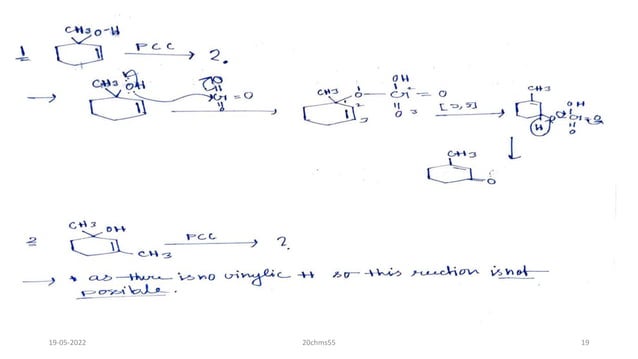 CH3 O-H
1 PCC → 2.
→ CH3 OH Cl O Cr = O O → CH3 1 O - Cr 2 = O OH O 3 2 3 [3,3] → CH3 H O Cr = O OH O
CH3 O
CH3 OH
2 CH3 PCC → ?
→ * as there is no vinylic H so this reaction is not
possible.
19-05-2022 20chms55 19